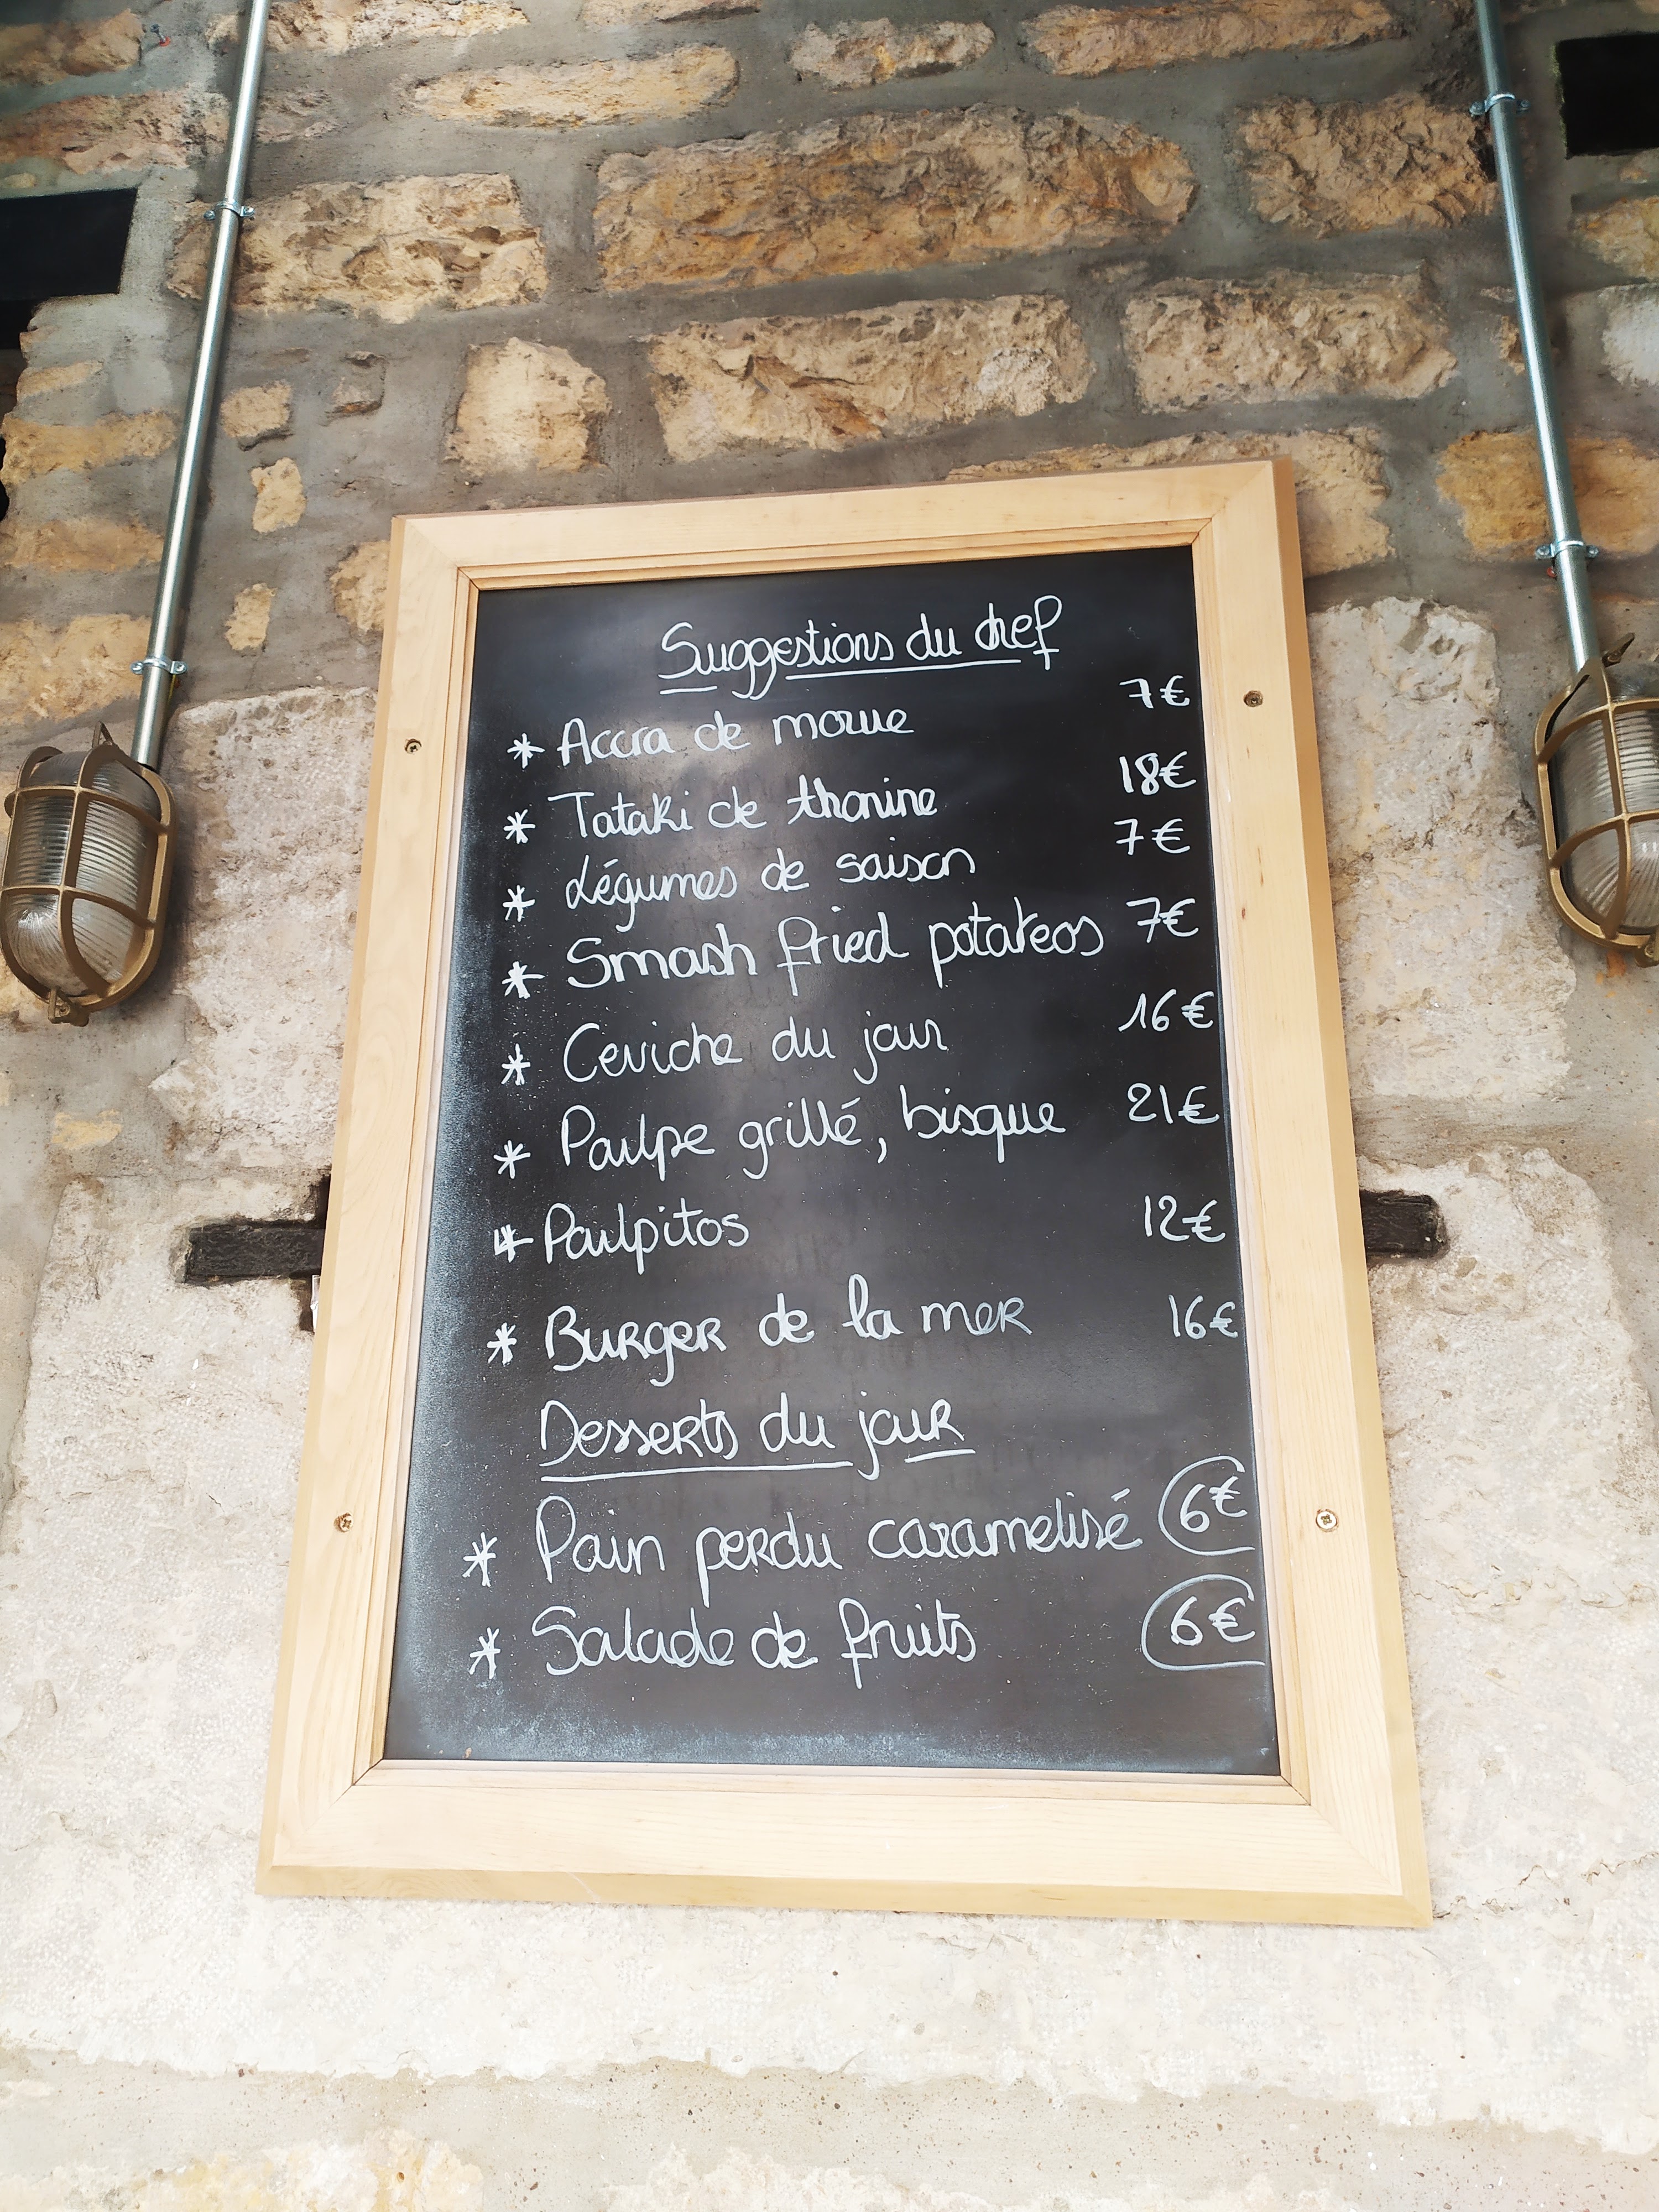 Suggestions du chef
* Accra de morue 7€
* Tataki de thonine 18€
* Légumes de saison 7€
* Smash fried potateos 7€
* Ceviche du jour 16€
* Poulpe grillé, bisque 21€
* Poulpitos 12€
* Burger de la mer 16€
Desserts du jour
* Pain perdu caramelisé 6€
* Salade de fruits 6€